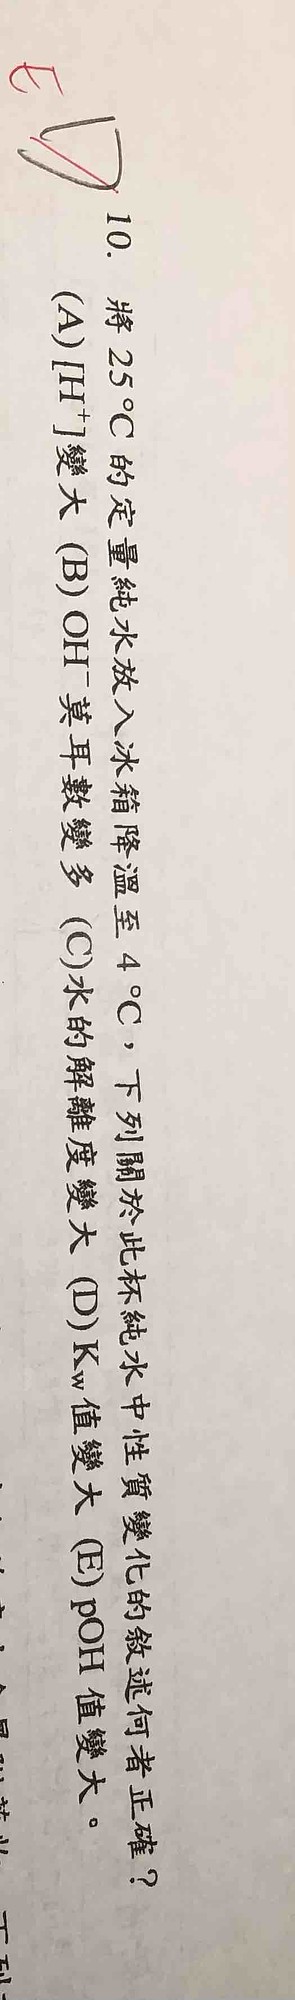 E D
10. 將 25 °C 的定量純水放入冰箱降溫至 4 °C，下列關於此杯純水中性質變化的敘述何者正確？
(A) [H⁺]變大 (B) OH⁻莫耳數變多 (C)水的解離度變大 (D) Kw值變大 (E) pOH 值變大。